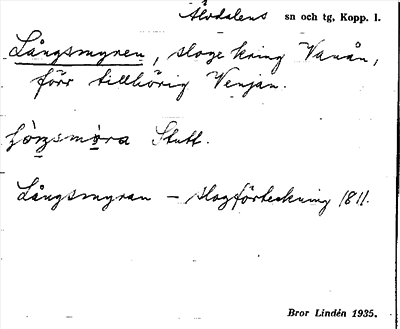 Älvdalens sn och tg, Kopp. l.
Långsmyren, sloge kring Vanån,
förr tillhörig Venjan.
Stutt.
Långsmyran — slogförteckning 1811.
Bror Lindén 1935.